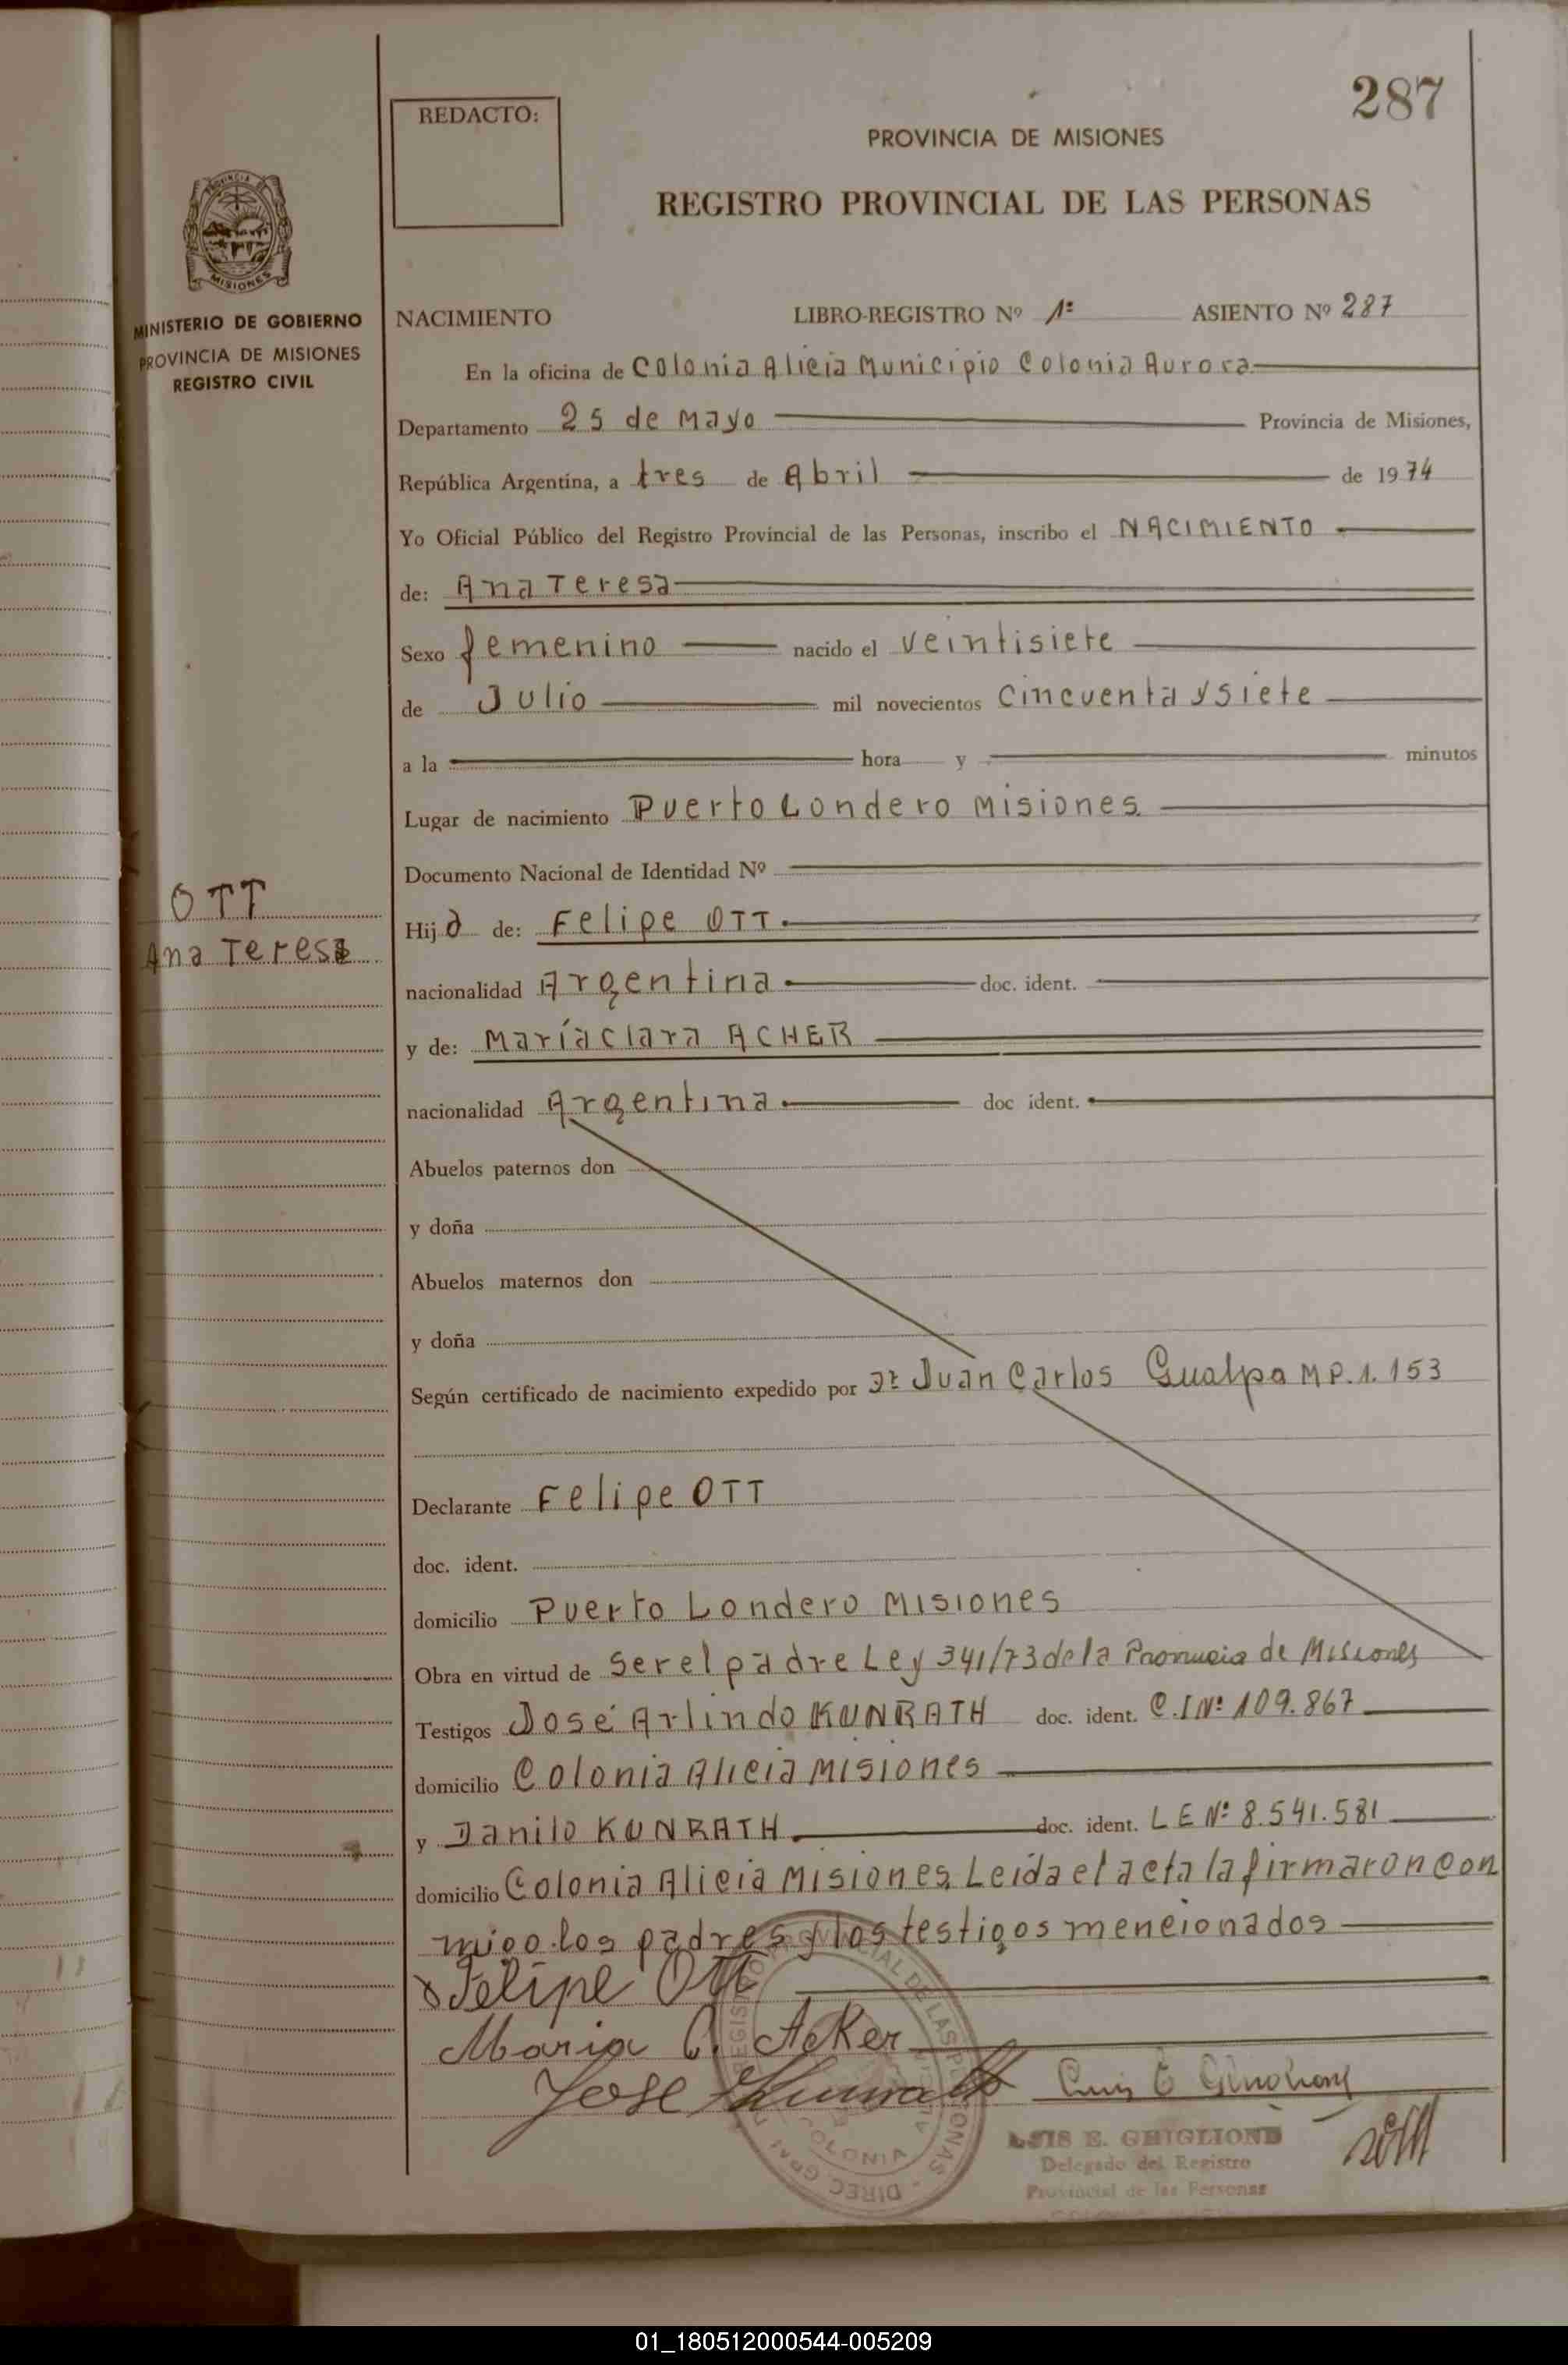 287
REDACTO:
PROVINCIA DE MISIONES
REGISTRO PROVINCIAL DE LAS PERSONAS
PROVINCIA DE
MISIONES
MINISTERIO DE GOBIERNO
PROVINCIA DE MISIONES
REGISTRO CIVIL
NACIMIENTO LIBRO-REGISTRO Nº 1º ASIENTO Nº 287
En la oficina de Colonia Alicia Municipio Colonia Aurora
Departamento 25 de Mayo Provincia de Misiones,
República Argentina, a tres de Abril de 1974
Yo Oficial Público del Registro Provincial de las Personas, inscribo el NACIMIENTO
de: Ana Teresa
Sexo femenino nacido el veintisiete
de Julio mil novecientos cincuenta y siete
a la hora y minutos
Lugar de nacimiento Puerto Londero Misiones
Documento Nacional de Identidad Nº
OTT
Ana Teresa
Hija de: Felipe OTT.
nacionalidad Argentina doc. ident.
y de: María Clara ACHER
nacionalidad Argentina doc ident.
Abuelos paternos don
y doña
Abuelos maternos don
y doña
Según certificado de nacimiento expedido por Juan Carlos Gualpa M P. 1. 153
Declarante Felipe OTT
doc. ident.
domicilio Puerto Londero Misiones
Obra en virtud de ser el padre Ley 341/73 de la Provincia de Misiones
Testigos José Arlindo KUNRATH doc. ident. C.I Nº 109.867
domicilio Colonia Alicia Misiones
y Danilo KUNRATH doc. ident. L E Nº 8.541.581
domicilio Colonia Alicia Misiones. Leída el acta la firmaron con
migo los padres y los testigos mencionados
Felipe Ott
Maria C. Acker
Jose Kunrath
LUIS E. GHIGLIONE
Delegado del Registro
Provincial de las Personas
01_180512000544-005209